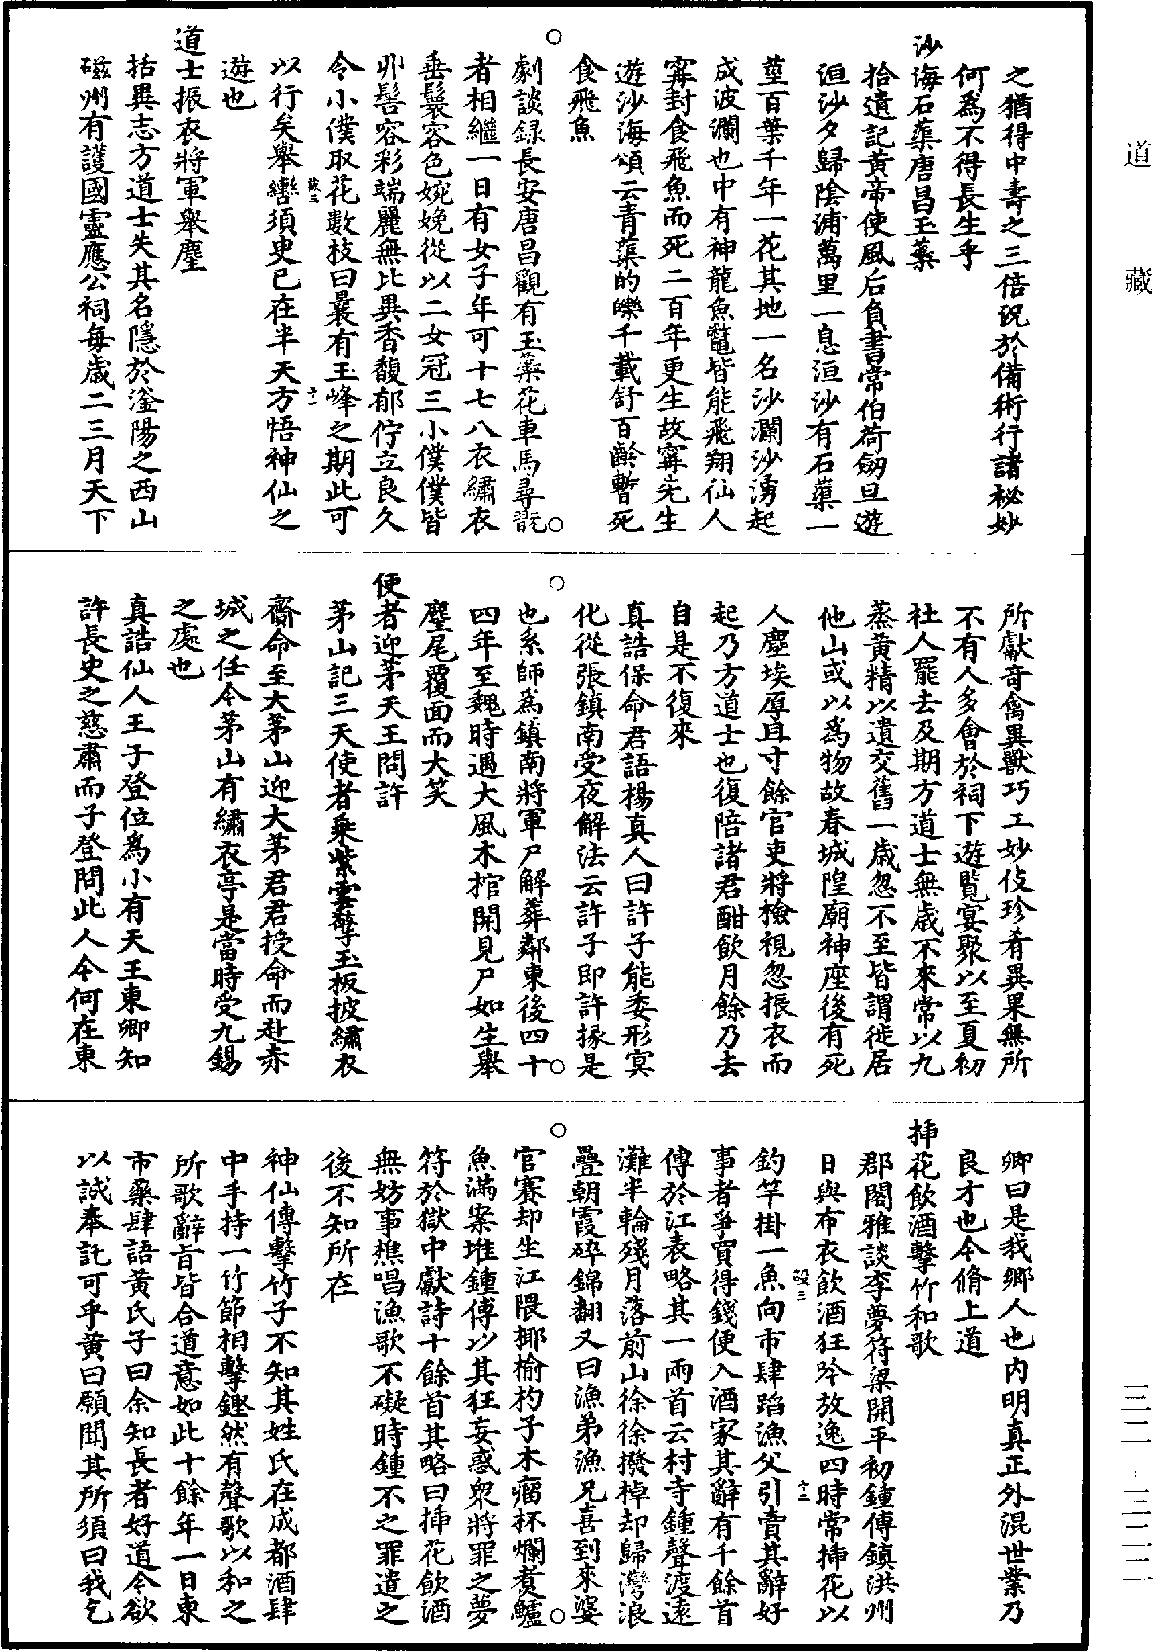 道藏
三二-三二二
之猶得中壽之三倍況於備術行諸祕妙
何為不得長生乎
沙海石蕖唐昌玉蘂
拾遺記黃帝使風后負書常伯荷劒旦遊
洹沙夕歸陰浦萬里一息洹沙有石蕖一
莖百葉千年一花其地一名沙瀾沙湧起
成波瀾也中有神龍魚鼈皆能飛翔仙人
甯封食飛魚而死二百年更生故甯先生
遊沙海頌云青蕖的皪千載舒百齡暫死
食飛魚
劇談録長安唐昌觀有玉蘂花車馬尋翫
者相繼一日有女子年可十七八衣繡衣
垂鬟容色婉娩從以二女冠三小僕僕皆
丱髻容彩端麗無比異香馥郁佇立良久
令小僕取花數枝曰曩有玉峰之期此可
以行矣舉轡須臾已在半天方悟神仙之
遊也
道士振衣將軍舉麈
括異志方道士失其名隱於滏陽之西山
磁州有護國靈應公祠每歲二三月天下
所獻奇禽異獸巧工妙伎珍肴異果無所
不有人多會於祠下遊覽宴聚以至夏初
社人罷去及期方道士無歲不來常以九
蒸黃精以遺交舊一歲忽不至皆謂徙居
他山或以為物故春城隍廟神座後有死
人塵埃厚且寸餘官吏將檢視忽振衣而
起乃方道士也復陪諸君酣飲月餘乃去
自是不復來
真誥保命君語楊真人曰許子能委形冥
化從張鎮南受夜解法云許子即許掾是
也系師為鎮南將軍尸解葬鄴東後四十
四年至魏時遇大風木棺開見尸如生舉
麈尾覆面而大笑
使者迎茅天王問許
茅山記三天使者乘紫雲擎玉板披繡衣
齋命至大茅山迎大茅君君授命而赴赤
城之任今茅山有繡衣亭是當時受九錫
之處也
真誥仙人王子登位為小有天王東卿知
許長史之慈肅而子登問此人今何在東
卿曰是我鄉人也內明真正外混世業乃
良才也今脩上道
揷花飲酒擊竹和歌
郡閣雅談李夢符梁開平初鍾傳鎮洪州
日與布衣飲酒狂吟放逸四時常揷花以
釣竿掛一魚向市肆蹈漁父引賣其辭好
事者爭買得錢便入酒家其辭有千餘首
傳於江表略其一兩首云村寺鍾聲渡遠
灘半輪殘月落前山徐徐撥棹却歸灣浪
疊朝霞碎錦翻又曰漁弟漁兄喜到來婆
官賽却坐江隈椰榆杓子木瘤杯爛煑鱸
魚滿案堆鍾傳以其狂妄惑衆將罪之夢
符於獄中獻詩十餘首其略曰揷花飲酒
無妨事樵唱漁歌不礙時鍾不之罪遣之
後不知所在
神仙傳擊竹子不知其姓氏在成都酒肆
中手持一竹節相擊鏗然有聲歌以和之
所歌辭旨皆合道意如此十餘年一日東
市藥肆語黃氏子曰余知長者好道今欲
以誠奉託可乎黃曰願聞其所須曰我乞